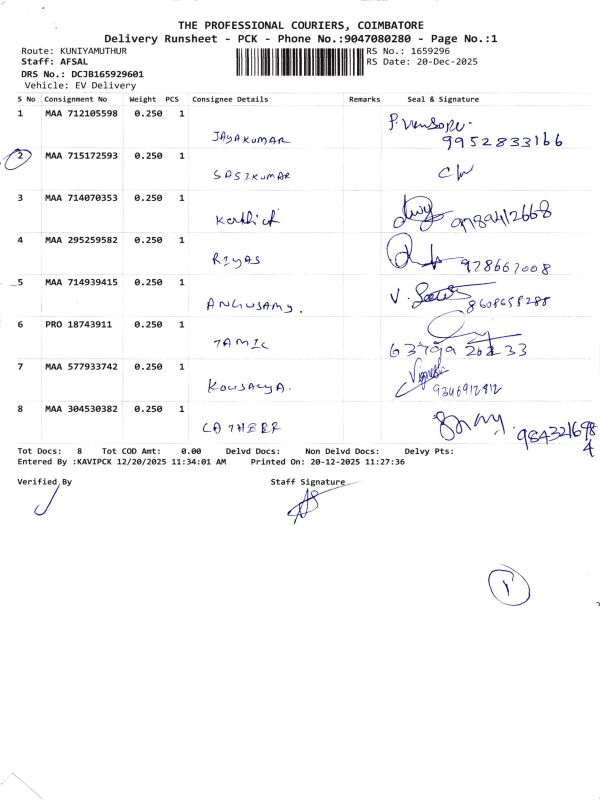 THE PROFESSIONAL COURIERS, COIMBATORE
Delivery Runsheet - PCK - Phone No.:9047080280 - Page No.:1
Route: KUNIYAMUTHUR RS No.: 1659296
Staff: AFSAL RS Date: 20-Dec-2025
DRS No.: DCJB165929601
Vehicle: EV Delivery
S No Consignment No Weight PCS Consignee Details Remarks Seal & Signature
1 MAA 712105598 0.250 1
JAYAKUMAR 9952833166
2 MAA 715172593 0.250 1
SASIKUMAR
3 MAA 714070353 0.250 1
Karthick 9789412668
4 MAA 295259582 0.250 1
RIYAS 928667008
5 MAA 714939415 0.250 1
ANGUSAMY.
6 PRO 18743911 0.250 1
TAMIL
7 MAA 577933742 0.250 1
KOWSALYA. 9346912812
8 MAA 304530382 0.250 1
LATHEEF 9843216984
Tot Docs: 8 Tot COD Amt: 0.00 Delvd Docs: Non Delvd Docs: Delvy Pts:
Entered By :KAVIPCK 12/20/2025 11:34:01 AM Printed On: 20-12-2025 11:27:36
Verified By Staff Signature
1